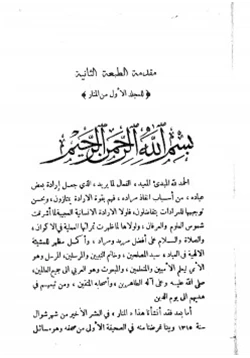 مقدمة الطبعة الثانية
﴿ للمجلد الأول من المنار ﴾
بسم الله الرحمن الرحيم
الحمد لله المبدئ المعيد، الفعال لما يريد، الذي جعل إرادة بعض
عباده، من أسباب إنفاذ مراده، فهم بقوة الارادة يتنازعون، وبحسن
توجيهها للمرادات يتفاضلون، فلولا الارادة الانسانية العجيبة لما أشرقت
شموس العلوم والعرفان، ولولاها لما ظهرت آثارها العملية في الاكوان،
والصلاة والسلام على أفضل مريد ومراد، وأكمل مظهر للمشيئة
الالهية في العباد، سيد المصلحين، وخاتم النبيين والمرسلين، المرسل وهو
الأمي ليعلم الأميين والمتعلمين، والمبعوث وهو العربي الى جميع العالمين،
صلى الله عليه وعلى آله الطاهرين، وأصحابه المتقين، ومن تبعهم في
هديهم الى يوم الدين
أما بعد فقد أنشأنا هذا المنار، في العشر الأخير من شهر شوال
سنة ١٣١٥ وبينا غرضنا منه في الصحيفة الأولى من صحفه وهو مسائل